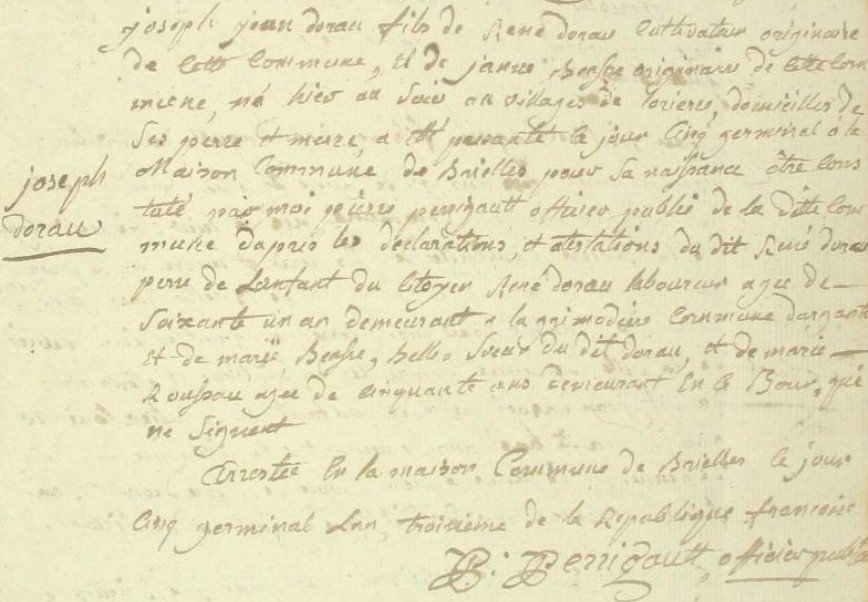 joseph jean dorau fils de René dorau Cultivateur originaire
de Cette Commune, et de janne Beasse originaire de Cette Com
mune, né hier au Soir au village de loriere, domicilles de
Ses perre et merre, a été presanté le jour Cinq germinal à la
Maison Commune de Brielles pour Sa naissance être Cons
tuté par moi pierre perrigault officier public de la ditte Com
mune dapres les declarations, et atestations du dit René dorau
perre de Lanfant du Citoyen René dorau laboureur agee de
Soixante un an demeurant a la grimodiere Commune dargantre
et de marie Beasse, belle Sœur du dit dorau, et de marie
Roussau agee de Cinquante ans demeurant En ce Bour, qui
ne Signent
joseph
dorau
Arrestée En la maison Commune de Brielles le jour
Cinq germinal Lan troisieme de la Republique francoise
P: Perrigault officier public